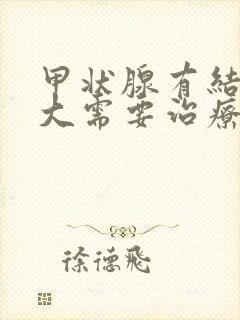 甲状腺有结
大需要治療
徐德飛